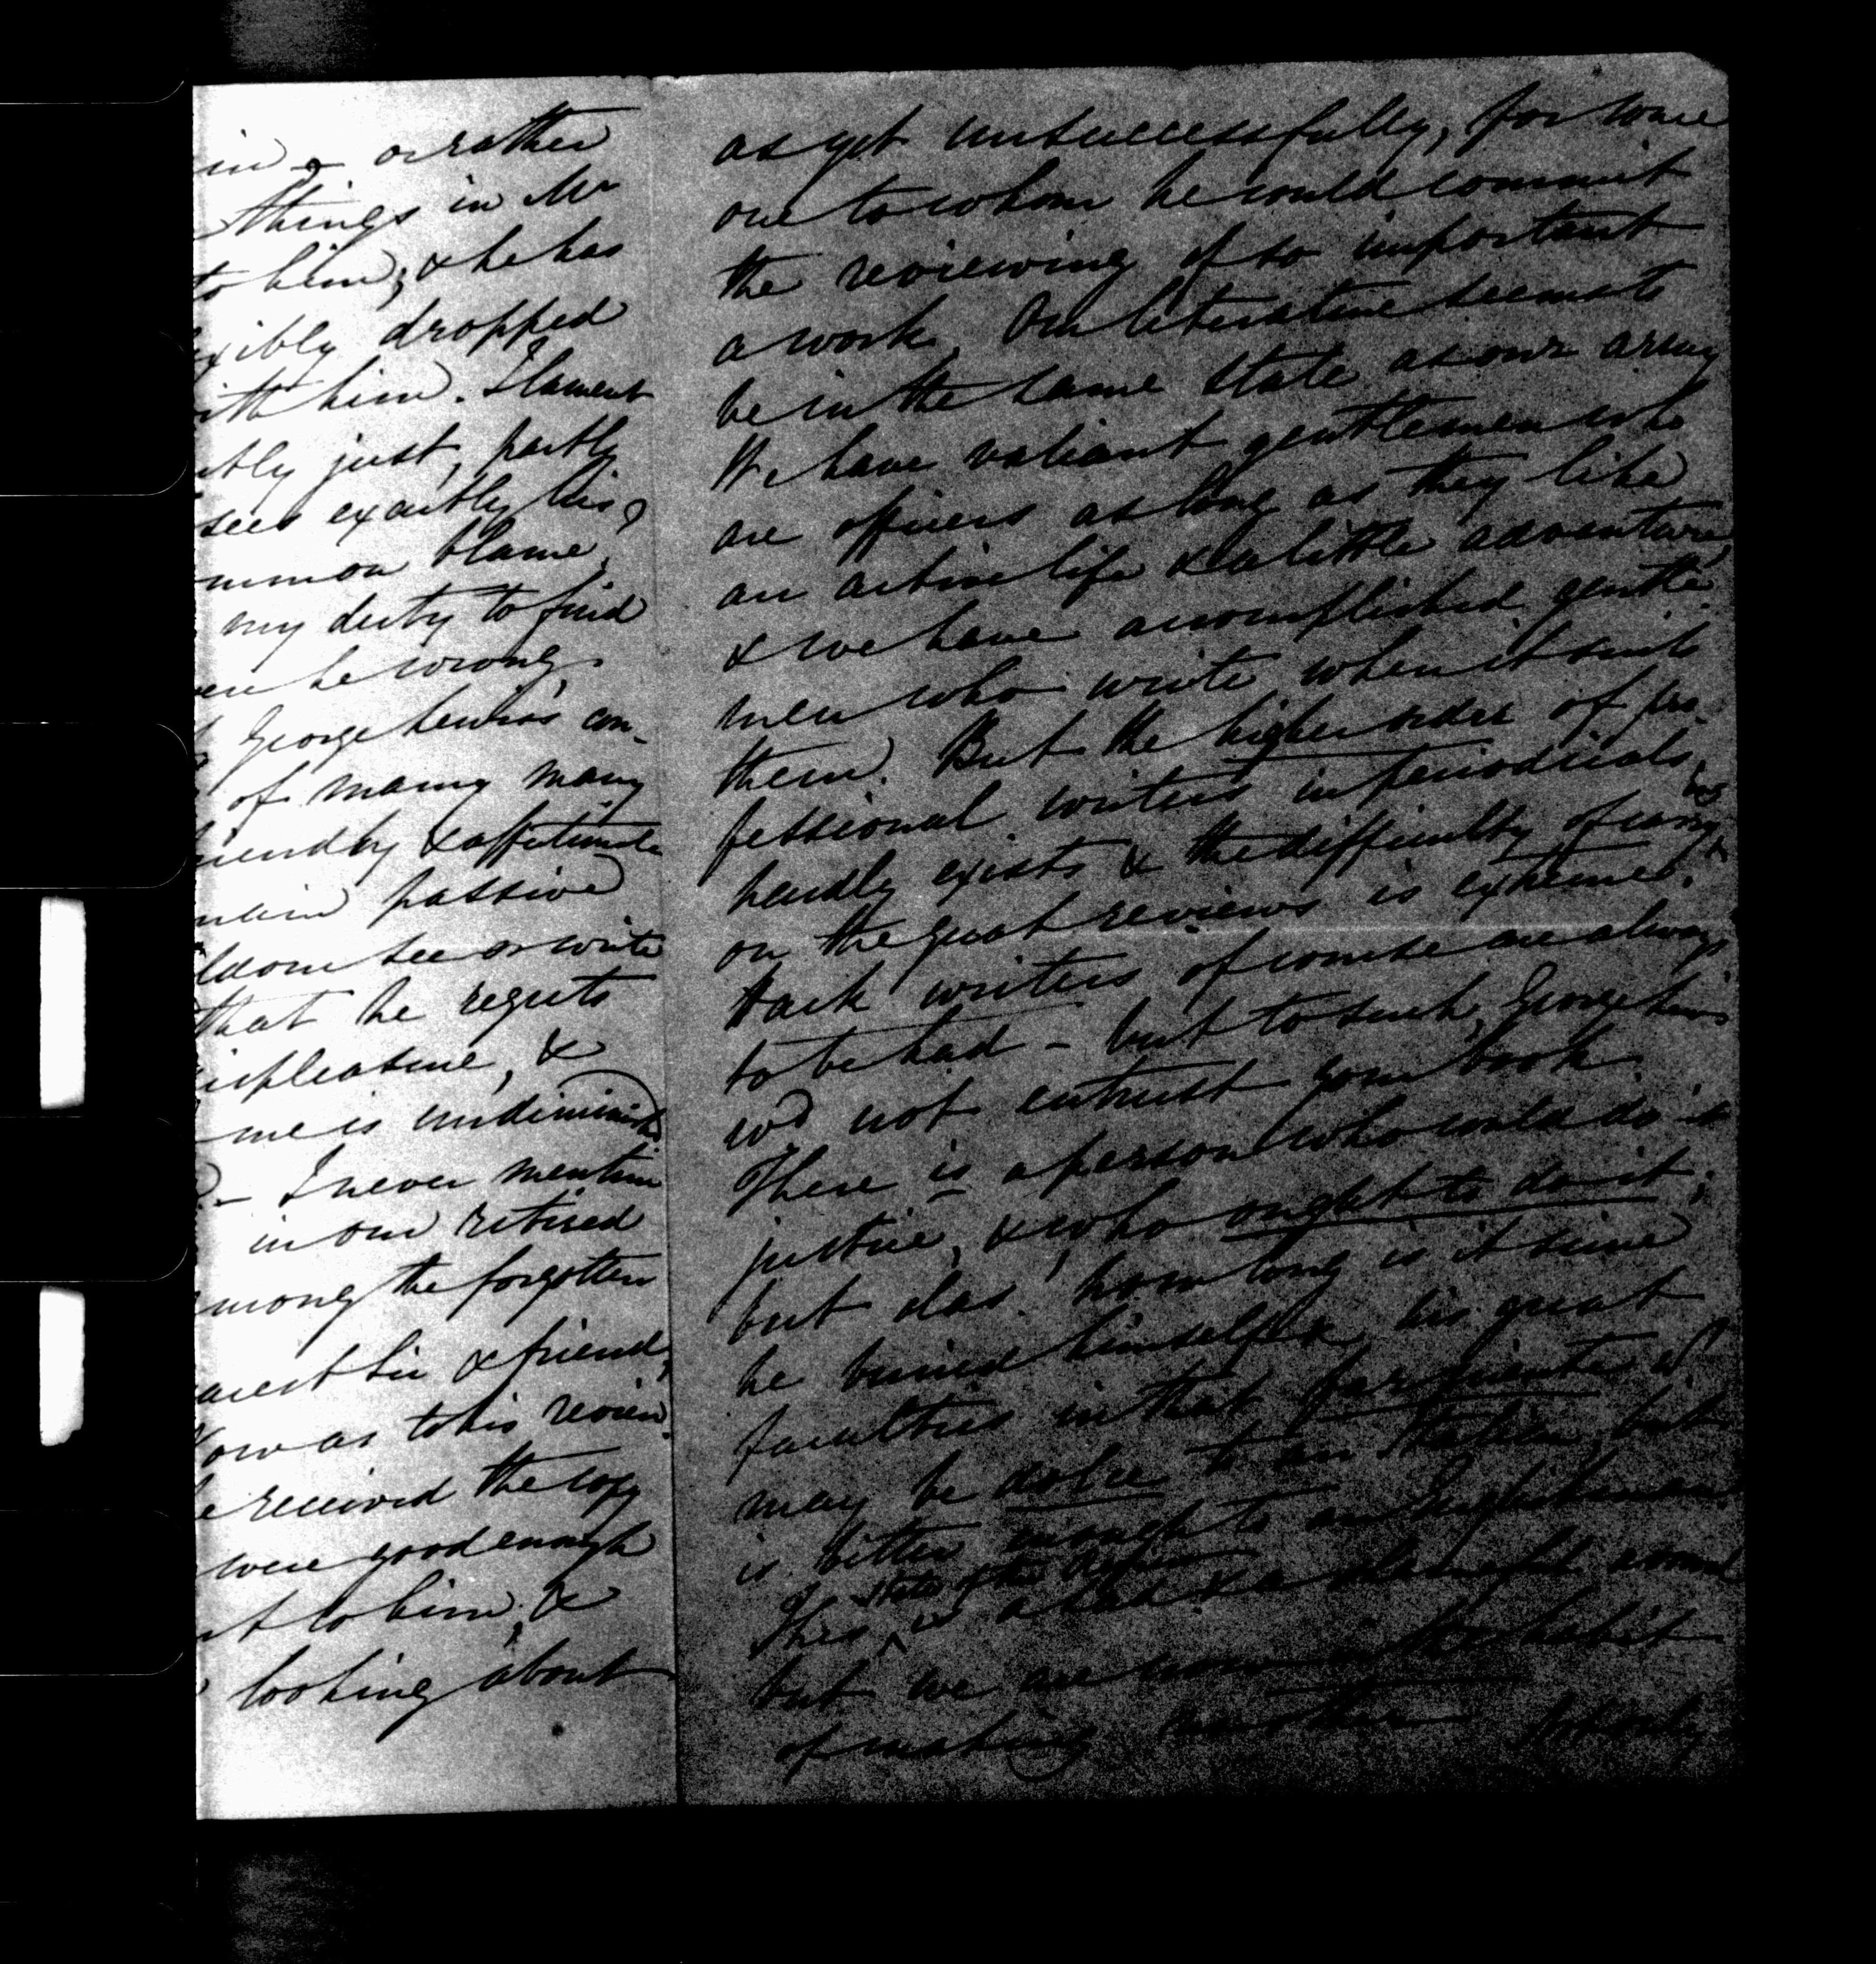 in - or rather
things in Mr
to him; & he has
xibly dropped
ith him. I lament
tly just, partly
sees exactly his,
mmon blame,
my duty to find
he wrong.
George Lewis's con-
of many many
iendly & affectionate
main passive
ldom see or write
that he regrets
ispleasure, &
me is undiminished
- I never mention
in our retired
mong the forgotten
arest Sir & friend,
ow as to his review.
e received the copy
were good enough
t to him, &
looking about
as yet unsuccessfully, for some
one to whom he could commit
the reviewing of so important
a work. Our literature seems to
be in the same state as our army
We have valiant gentlemen who
are officers as long as they like
an active life & a little adventure,
& we have accomplished gentle
men who write when it suits
them. But the higher order of pro-
fessional writers in periodicals
hardly exists & the difficulty of carrying
on the great reviews is extreme.
Hack writers of course are always
to be had - but to such, George Lewis
wd not entrust your book.
There is a person who would do it
justice, & who ought to do it;
but alas! how long is it since
he buried himself & his great
faculties in that far niente wh
may be dolce to an Italian, but
is bitter enough to an Englishman.
state of the Review
This is a sad & a shameful
but we are now in the habit
of making another